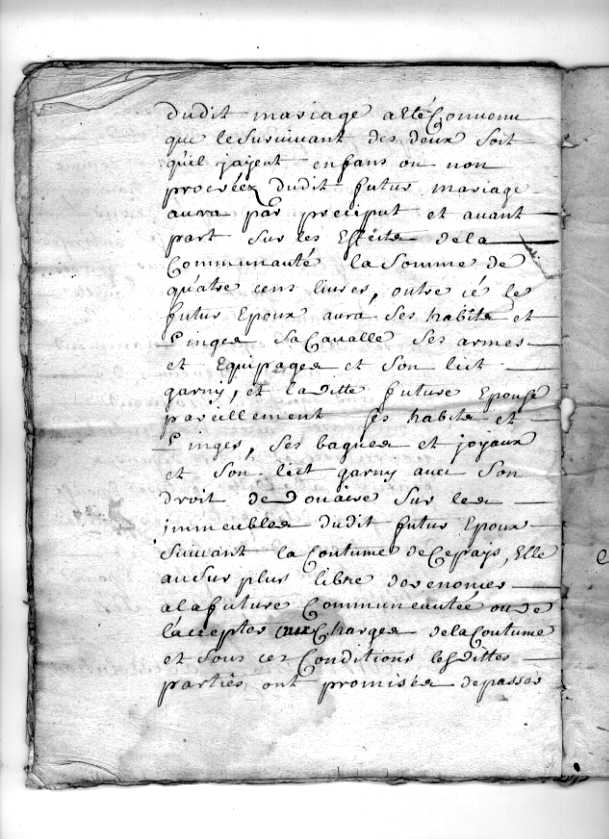 dudit mariage a esté Convenu
que le survivant des deux soit
qu'il y ajent enfans ou non
procréez dudit futur mariage
aura par preciput et avant
part sur les Effects de la
Communauté la somme de
quatre cens livres, outre cé le
futur Epoux aura ses habits et
Linges sa Cavalle ses armes
et Equipages et son lict
garny, et laditte future Epouse
pareillement ses habits et
Linges, ses bagues et joyaux
et son lict garny avec son
droit de Douaire sur les
immeubles dudit futur Epoux
suivant la Coutume de Ce pays, Elle
au surplus libre de renoncer
a la future Communeautée ou de
l'accepter aux Charges de la Coutume
et sous ces Conditions lesdittes
parties ont promises de passer